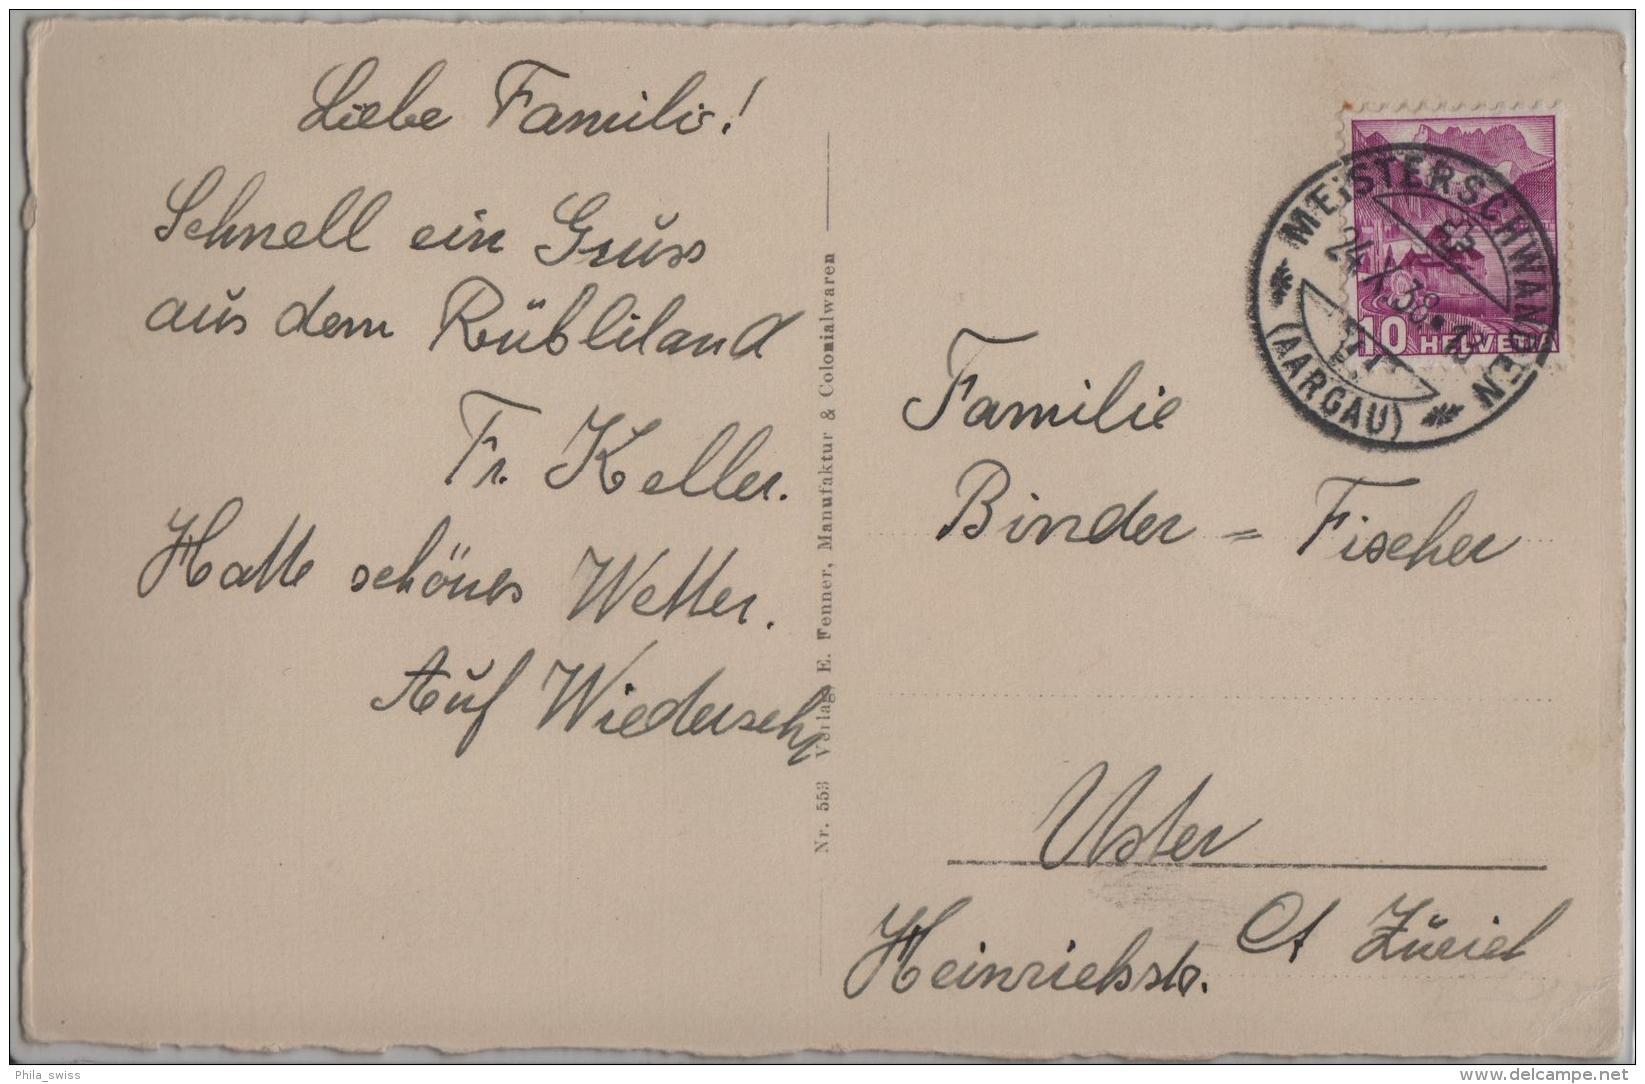 Liebe Famili!
Schnell ein Gruss
aus dem Rübliland
Fr. Keller.
Hatte schönes Wetter.
Auf Wiederseh
Nr. 553 Verlag E. Fenner, Manufaktur & Colonialwaren
MEISTERSCHWANDEN
(AARGAU)
24.X.38
10 HELVETIA
Familie
Binder = Fischer
Uster
Ct Zürich
Heinrichstr.
Phila_swiss
delcampe.net